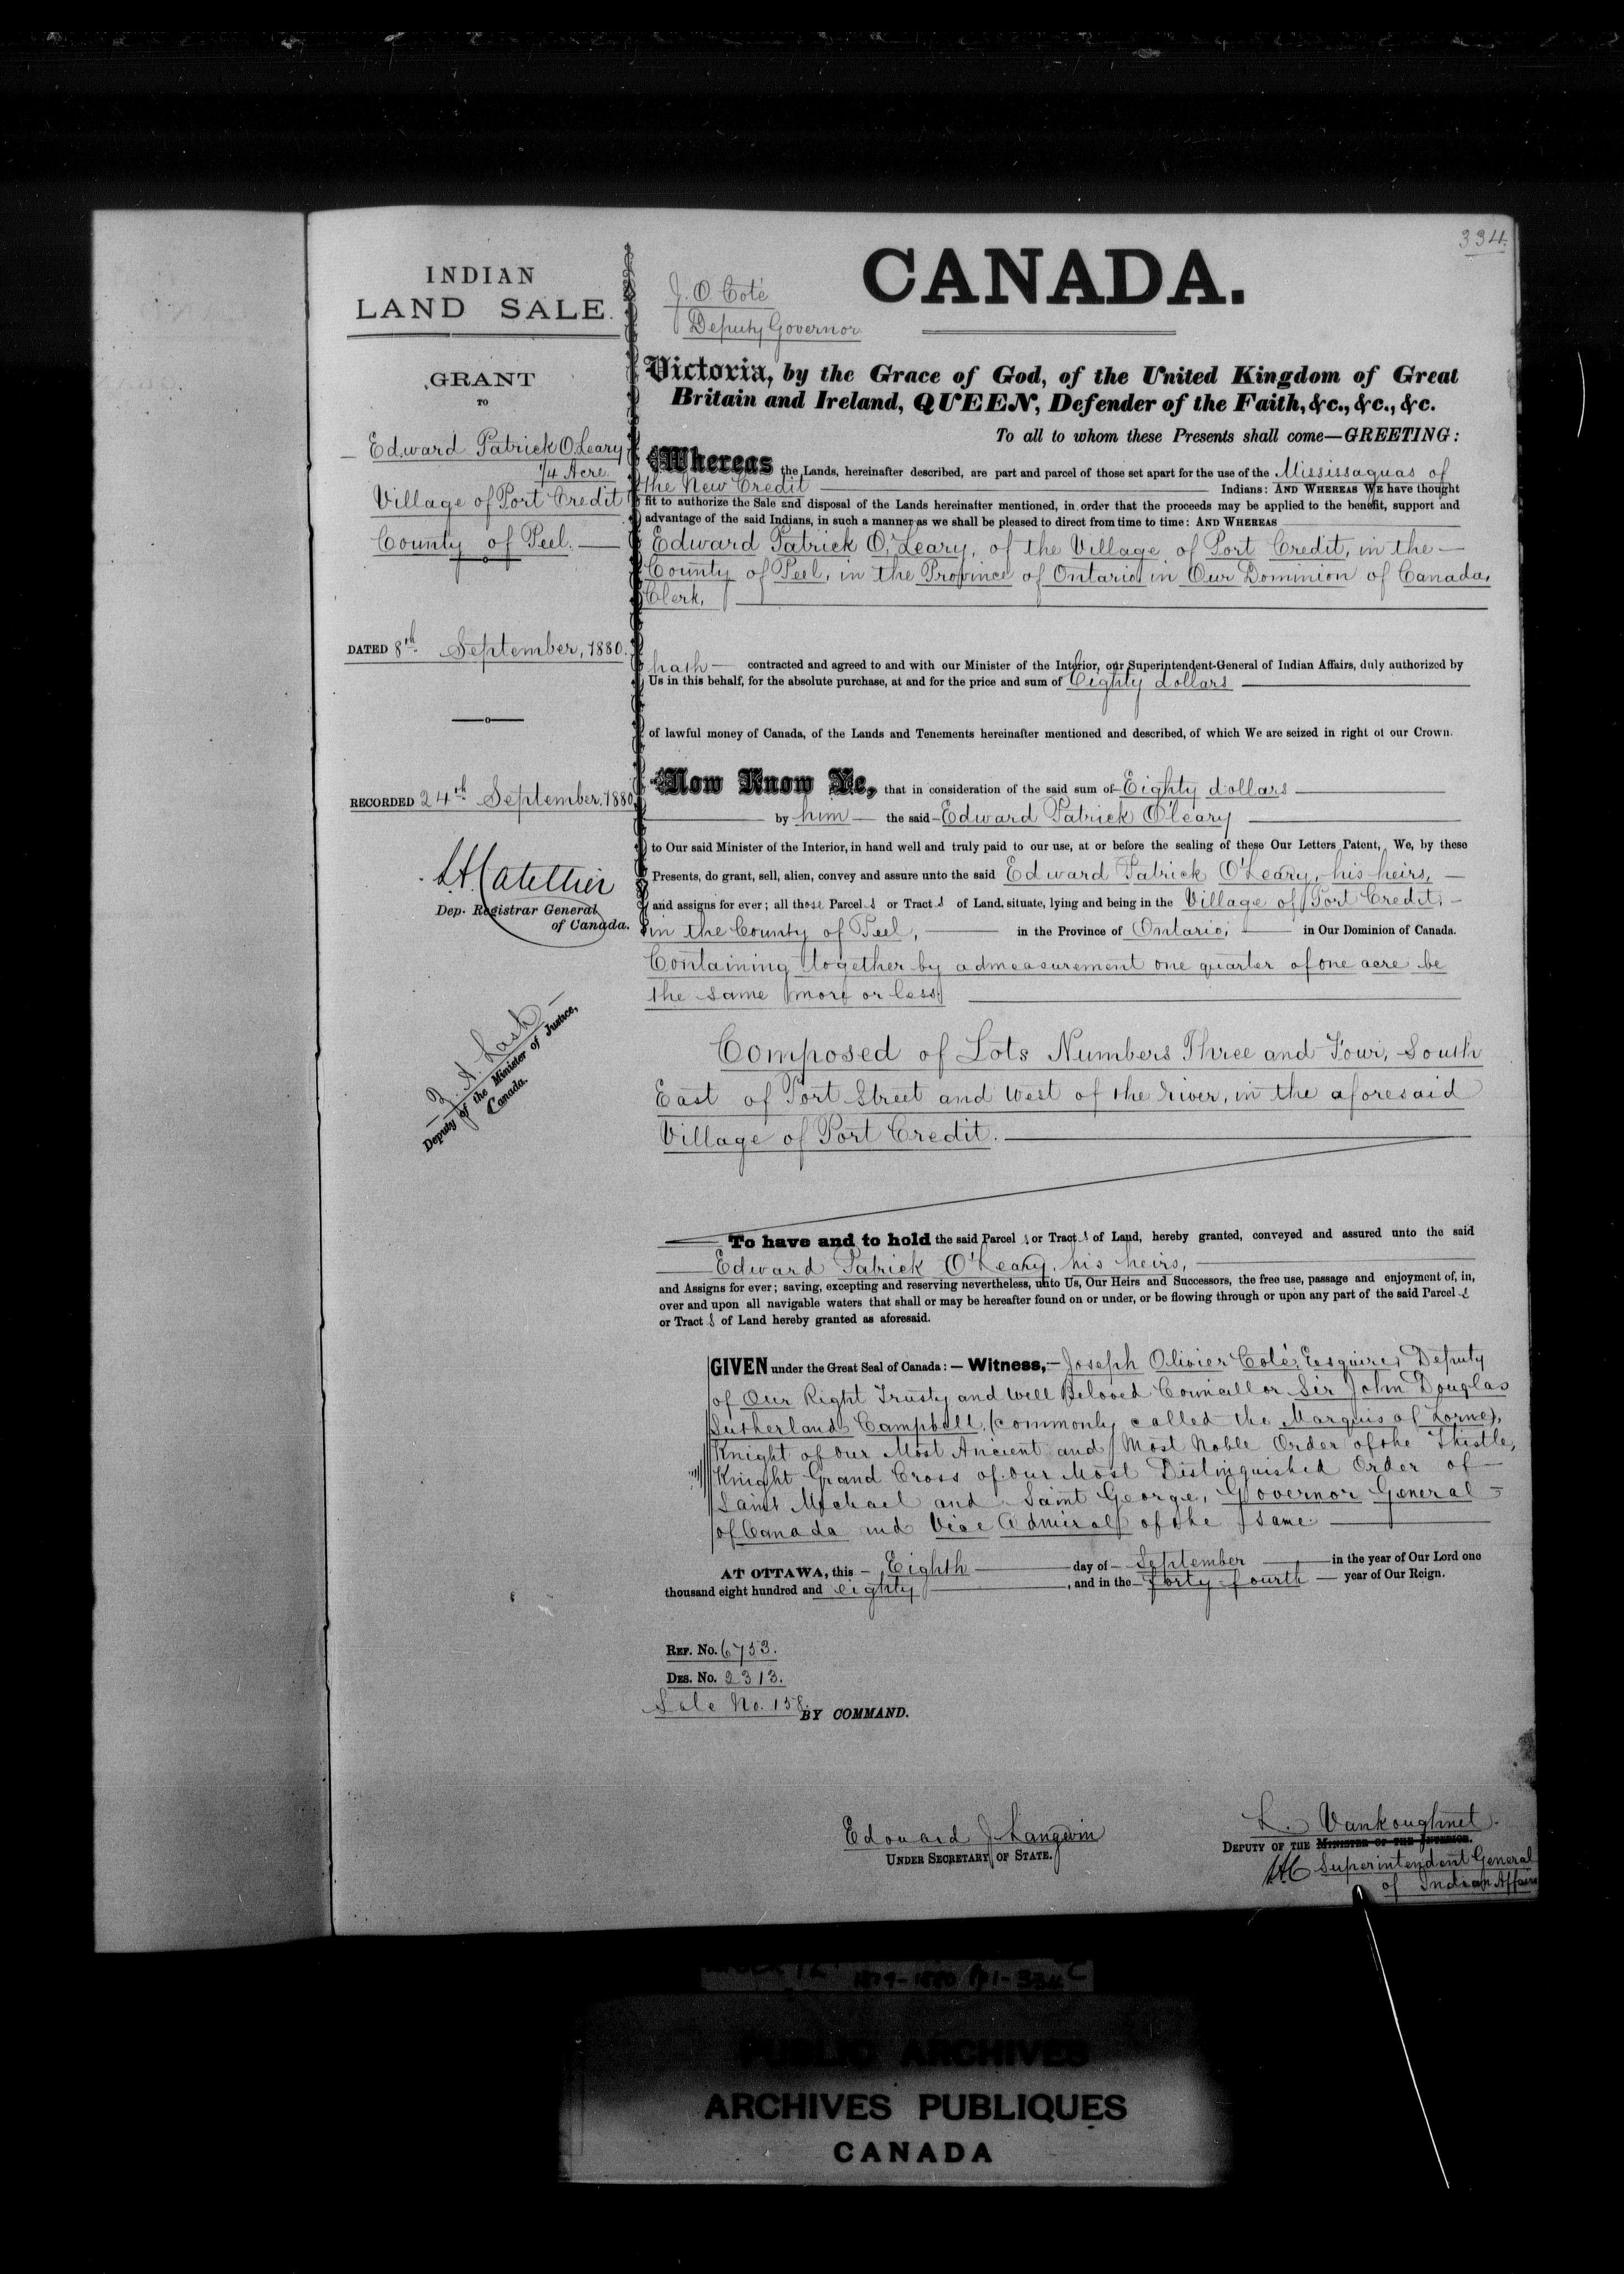 334.
INDIAN
LAND SALE.
GRANT
TO
Edward Patrick O'Leary
1/4 Acre
Village of Port Credit
County of Peel.
DATED 8th September, 1880.
RECORDED 24th September, 1880
L. A. Catellier
Dep. Registrar General
of Canada.
Z. A. Lash
Deputy of the Minister of Justice,
Canada.
J. O. Coté
Deputy Governor
CANADA.
Victoria, by the Grace of God, of the United Kingdom of Great
Britain and Ireland, QUEEN, Defender of the Faith, &c., &c., &c.
To all to whom these Presents shall come—GREETING:
Whereas the Lands, hereinafter described, are part and parcel of those set apart for the use of the Mississaguas of
the New Credit Indians: AND WHEREAS WE have thought
fit to authorize the Sale and disposal of the Lands hereinafter mentioned, in order that the proceeds may be applied to the benefit, support and
advantage of the said Indians, in such a manner as we shall be pleased to direct from time to time: AND WHEREAS
Edward Patrick O'Leary, of the Village of Port Credit, in the
County of Peel, in the Province of Ontario in Our Dominion of Canada,
Clerk,
hath contracted and agreed to and with our Minister of the Interior, our Superintendent-General of Indian Affairs, duly authorized by
Us in this behalf, for the absolute purchase, at and for the price and sum of Eighty dollars
of lawful money of Canada, of the Lands and Tenements hereinafter mentioned and described, of which We are seized in right of our Crown.
Now Know Ye, that in consideration of the said sum of Eighty dollars
by him the said Edward Patrick O'Leary
to Our said Minister of the Interior, in hand well and truly paid to our use, at or before the sealing of these Our Letters Patent, We, by these
Presents, do grant, sell, alien, convey and assure unto the said Edward Patrick O'Leary, his heirs,
and assigns for ever; all those Parcels or Tracts of Land, situate, lying and being in the Village of Port Credit,
in the County of Peel, in the Province of Ontario, in Our Dominion of Canada.
Containing together by admeasurement one quarter of one acre be
the same more or less;
Composed of Lots Numbers Three and Four, South
East of Port Street and West of the river, in the aforesaid
Village of Port Credit.
To have and to hold the said Parcels or Tracts of Land, hereby granted, conveyed and assured unto the said
Edward Patrick O'Leary, his heirs,
and Assigns for ever; saving, excepting and reserving nevertheless, unto Us, Our Heirs and Successors, the free use, passage and enjoyment of, in,
over and upon all navigable waters that shall or may be hereafter found on or under, or be flowing through or upon any part of the said Parcels
or Tracts of Land hereby granted as aforesaid.
GIVEN under the Great Seal of Canada:—Witness,—Joseph Olivier Coté, Esquire, Deputy
of Our Right Trusty and Well Beloved Councillor Sir John Douglas
Sutherland Campbell, (commonly called the Marquis of Lorne),
Knight of Our Most Ancient and Most Noble Order of the Thistle,
Knight Grand Cross of Our Most Distinguished Order of
Saint Michael and Saint George, Governor General
of Canada and Vice Admiral of the same
AT OTTAWA, this Eighth day of September in the year of Our Lord one
thousand eight hundred and eighty, and in the forty-fourth year of Our Reign.
REF. No. 6753.
DES. No. 2313.
Sale No. 158.
BY COMMAND.
Edouard J. Langevin
UNDER SECRETARY OF STATE.
L. Vankoughnet
DEPUTY OF THE MINISTER OF THE INTERIOR.
LAC Superintendent General
of Indian Affairs
1879-1880 pp 1-334
PUBLIC ARCHIVES
ARCHIVES PUBLIQUES
CANADA